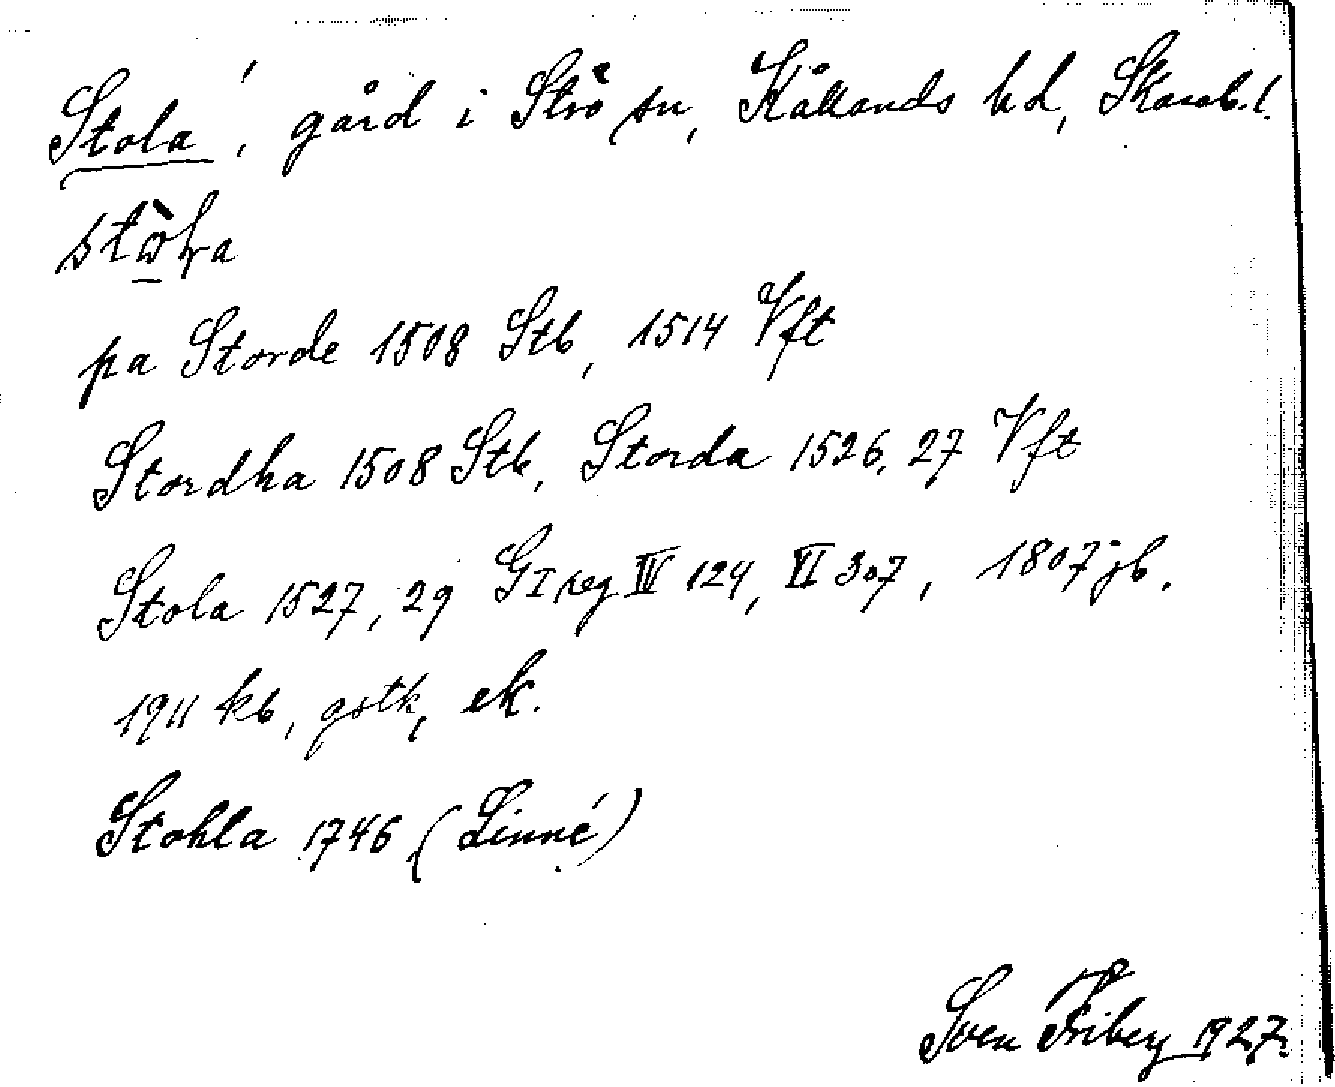 Stola, gård i Strö sn, Kållands hd, Skarab. l.
pa Storde 1508 Stb, 1514 Vft
Stordha 1508 Stb, Storda 1526, 27 Vft
Stola 1527, 29 GI reg IV 124, VI 307, 1807 jb.
1911 kb, gstk, ek.
Stohla 1746 (Linné)
Sven Friberg 1927.